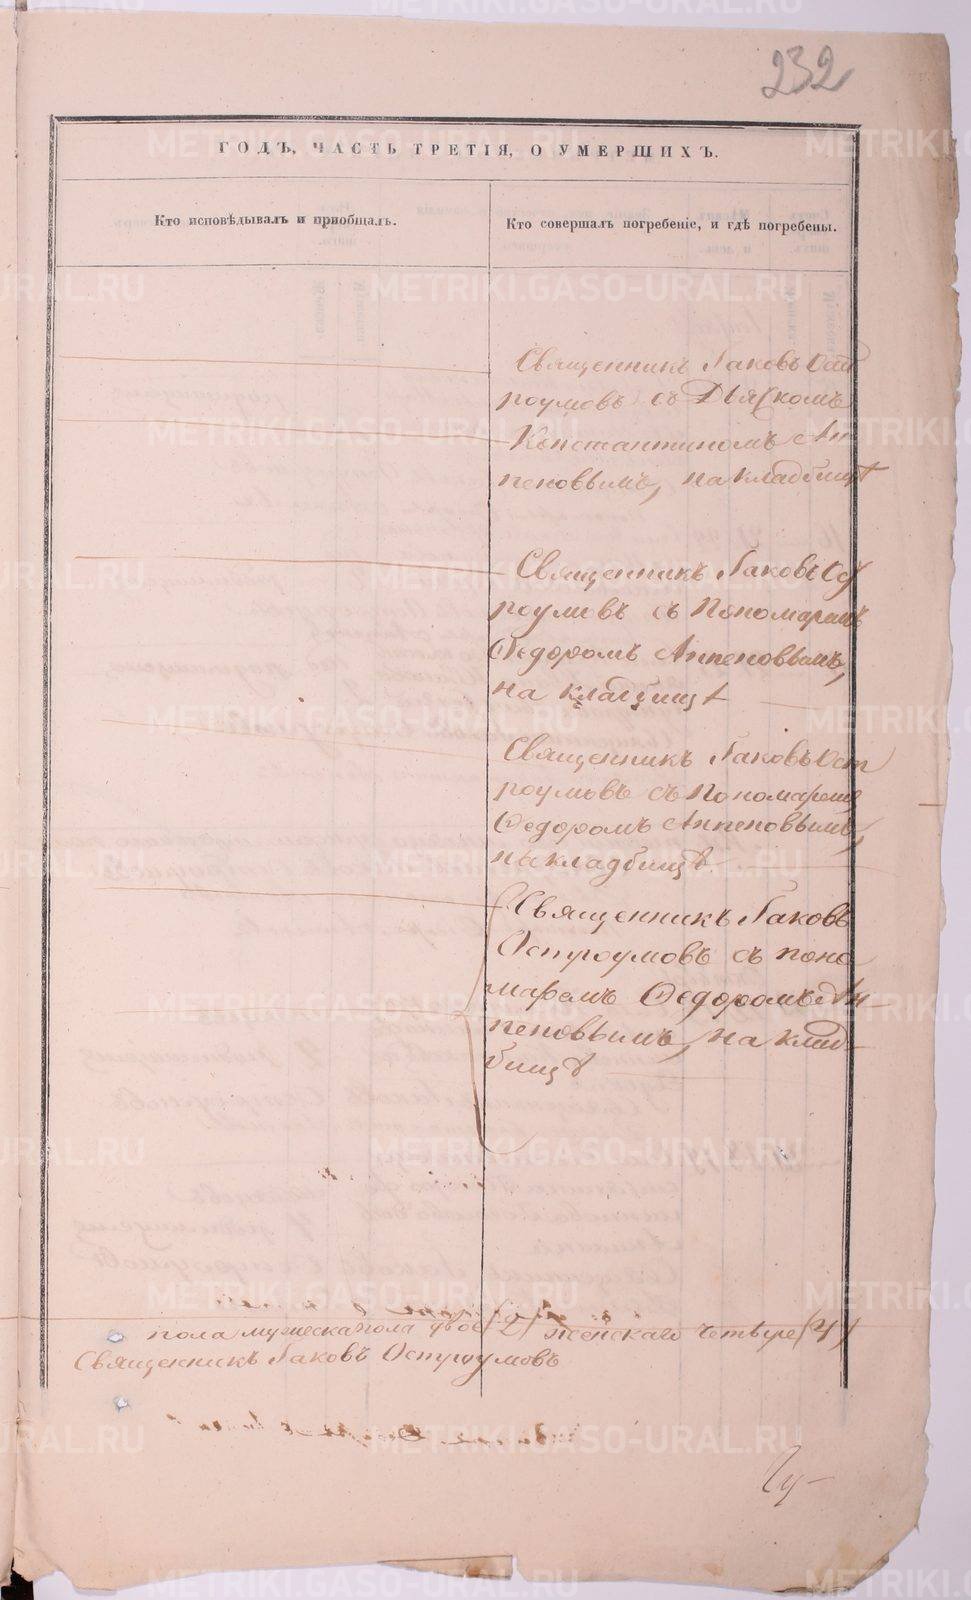 232
ГОДЪ, ЧАСТЬ ТРЕТІЯ, О УМЕРШИХЪ.
Кто исповѣдывалъ и пріобщалъ.
Кто совершалъ погребеніе, и гдѣ погребены.
Священникъ Іаковъ Ост
роумовъ съ Дьячкомъ
Константиномъ Ан
пеновымъ, на кладбищѣ
Священникъ Іаковъ Ост
роумовъ съ Пономаремъ
Ѳедоромъ Анпеновымъ,
на кладбищѣ
Священникъ Іаковъ Ост
роумовъ съ Пономаремъ
Ѳедоромъ Анпеновымъ,
на кладбищѣ
Священникъ Іаковъ
Остроумовъ съ поно
маремъ Ѳедоромъ Ан
пеновымъ, на клад
бищѣ
пола мужеска пола двое (2) женскаго четыре (4)
Священникъ Іаковъ Остроумовъ
METRIKI.GASO-URAL.RU